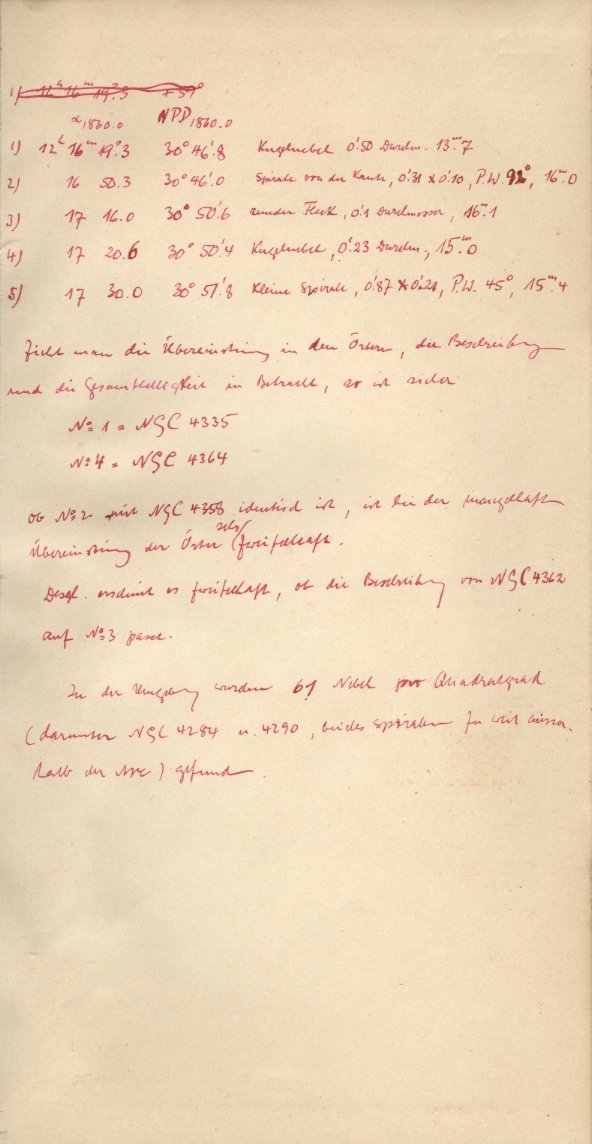 1) 12h 16m 19s.3 +59°
α1860.0 NPD1860.0
1) 12h 16m 19s.3 30° 46'.8 Kugelnebel 0'.50 Durchm. 13m.7
2) 16 50.3 30° 46'.0 Spirale von der Kante, 0'.31 x 0'.10, P.W. 92°, 16m.0
3) 17 16.0 30° 50'.6 runder Fleck, 0'.1 Durchmesser, 16m.1
4) 17 20.6 30° 50'.4 Kugelnebel, 0'.23 Durchm., 15m.0
5) 17 30.0 30° 51'.8 Kleine Spirale, 0'.87 x 0'.21, P.W. 45°, 15m.4
Zieht man die Übereinstimmung in den Örtern, der Beschreibung
und die Gesamthelligkeit in Betracht, so ist sicher
No 1 = NGC 4335
No 4 = NGC 4364
ob No 2 mit NGC 4358 identisch ist, ist bei der mangelhaften
Übereinstimmung der Örter sehr zweifelhaft.
Desgl. erscheint es zweifelhaft, ob die Beschreibung von NGC 4362
auf No 3 passt.
In der Umgebung wurden 61 Nebel pro Quadratgrad
(darunter NGC 4284 u. 4290, beides Spiralen zu weit ausser-
halb der) gefunden.